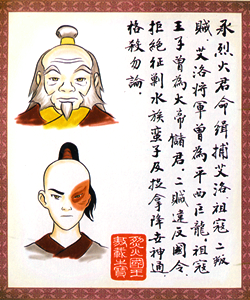 承烈火君命緝捕艾洛祖寇二叛
賊艾洛將軍曾為平西巨龍祖寇
王子曾為大帝儲君二賊違反國令
拒絕征剿水族蠻子及拉拿降世神通
格殺勿論
烈火國王